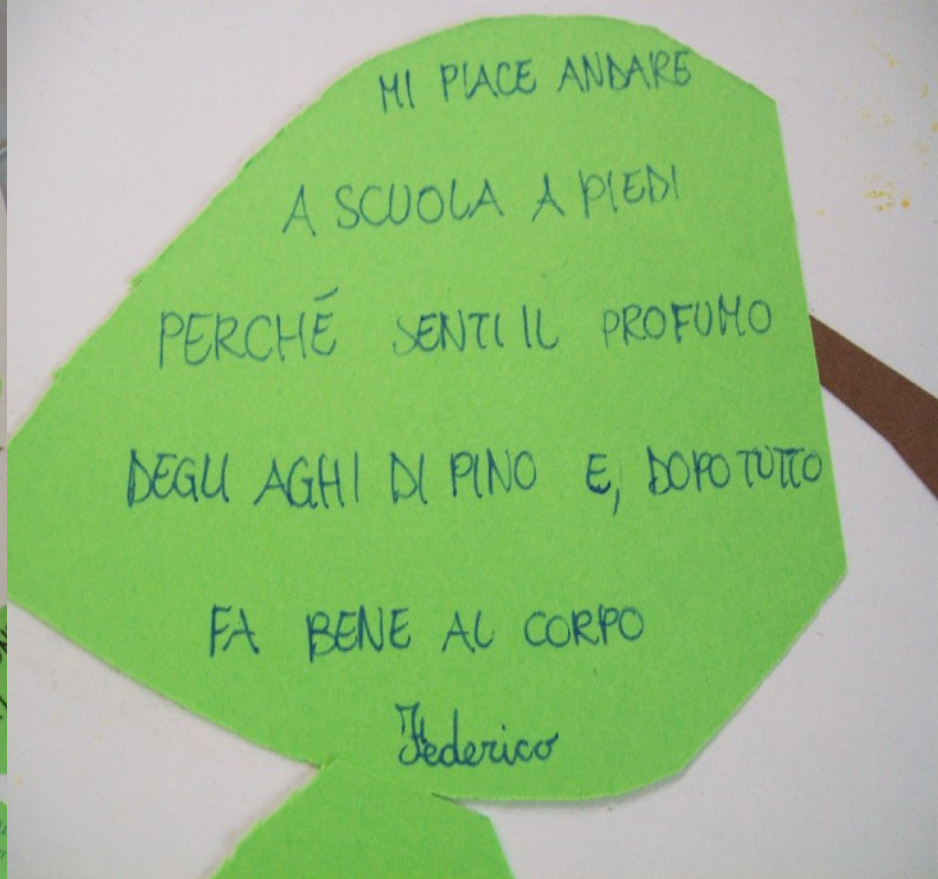 MI PIACE ANDARE
A SCUOLA A PIEDI
PERCHÉ SENTI IL PROFUMO
DEGLI AGHI DI PINO E, DOPO TUTTO
FA BENE AL CORPO
Federico